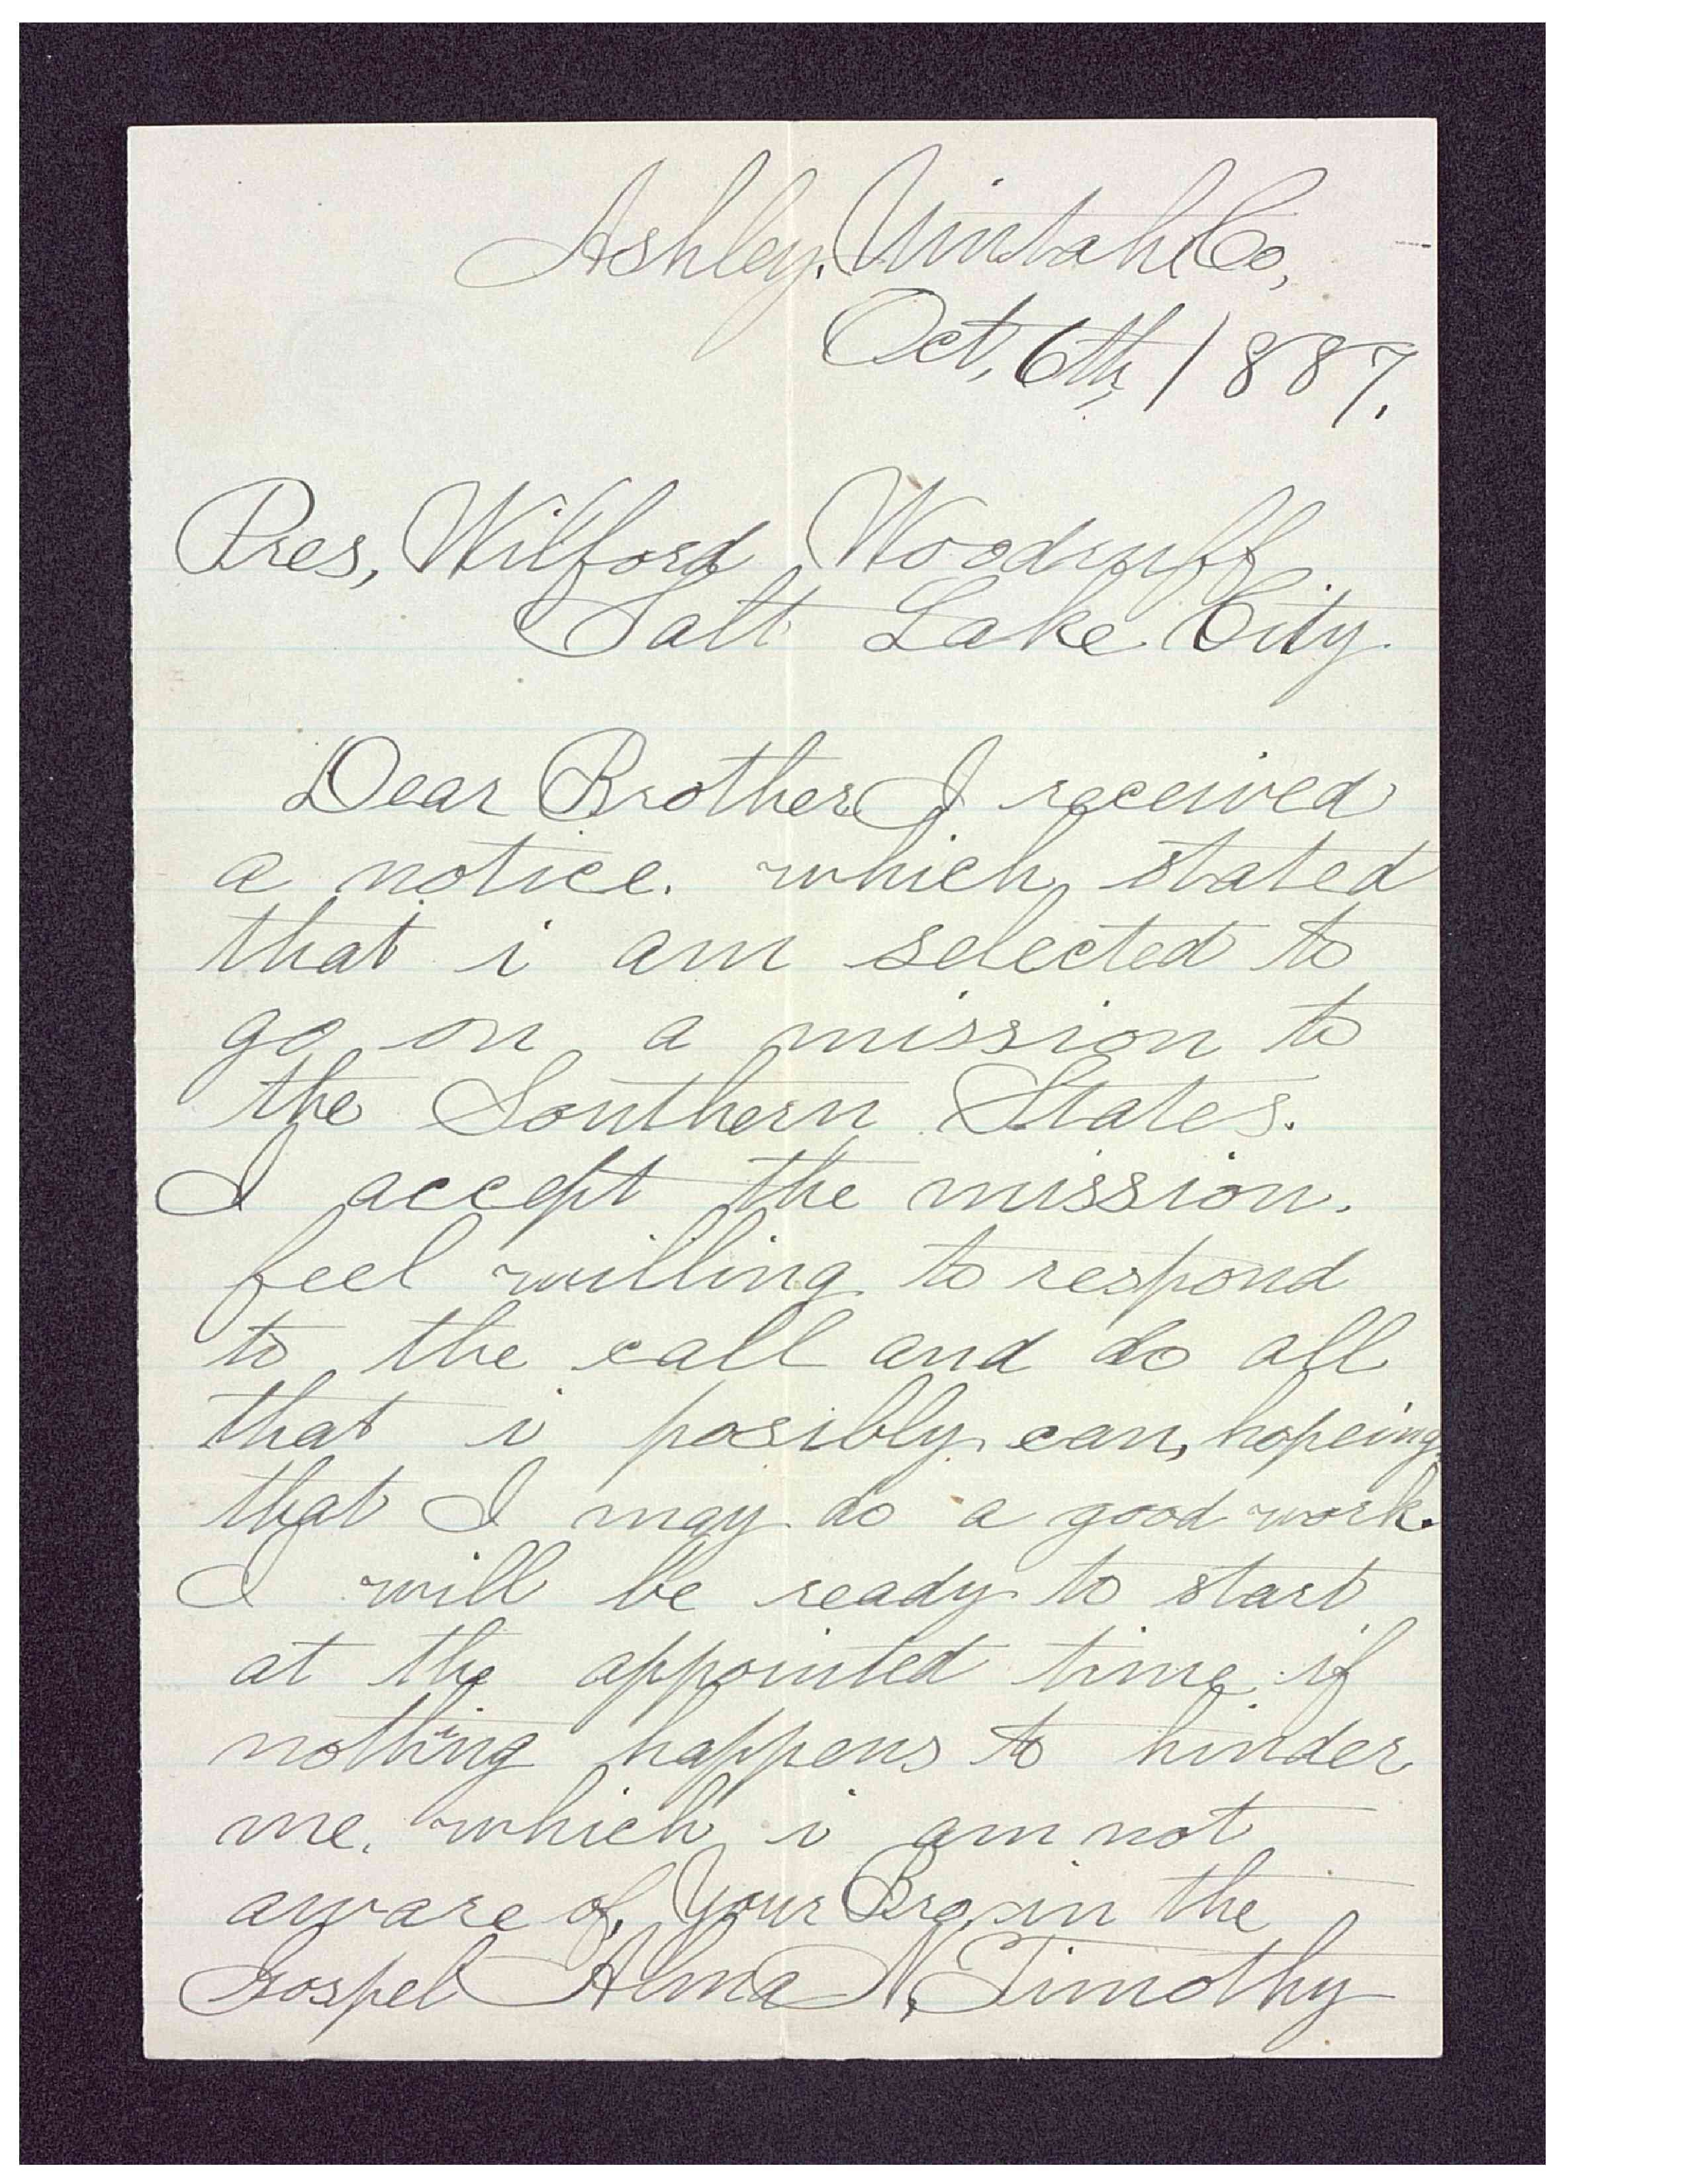 Ashley. Uintah Co,
Oct, 6th, 1887.
Pres, Wilford Woodruff
Salt Lake City.
Dear Brother I received
a notice. which stated
that i am selected to
go on a mission to
the Southern States.
I accept the mission.
feel willing to respond
to the call and do all
that i posibly can, hopeing
that I may do a good work.
I will be ready to start
at the appointed time if
nothing happens to hinder
me. which i am not
aware of, Your Bro, in the
Gospel Alma N, Timothy